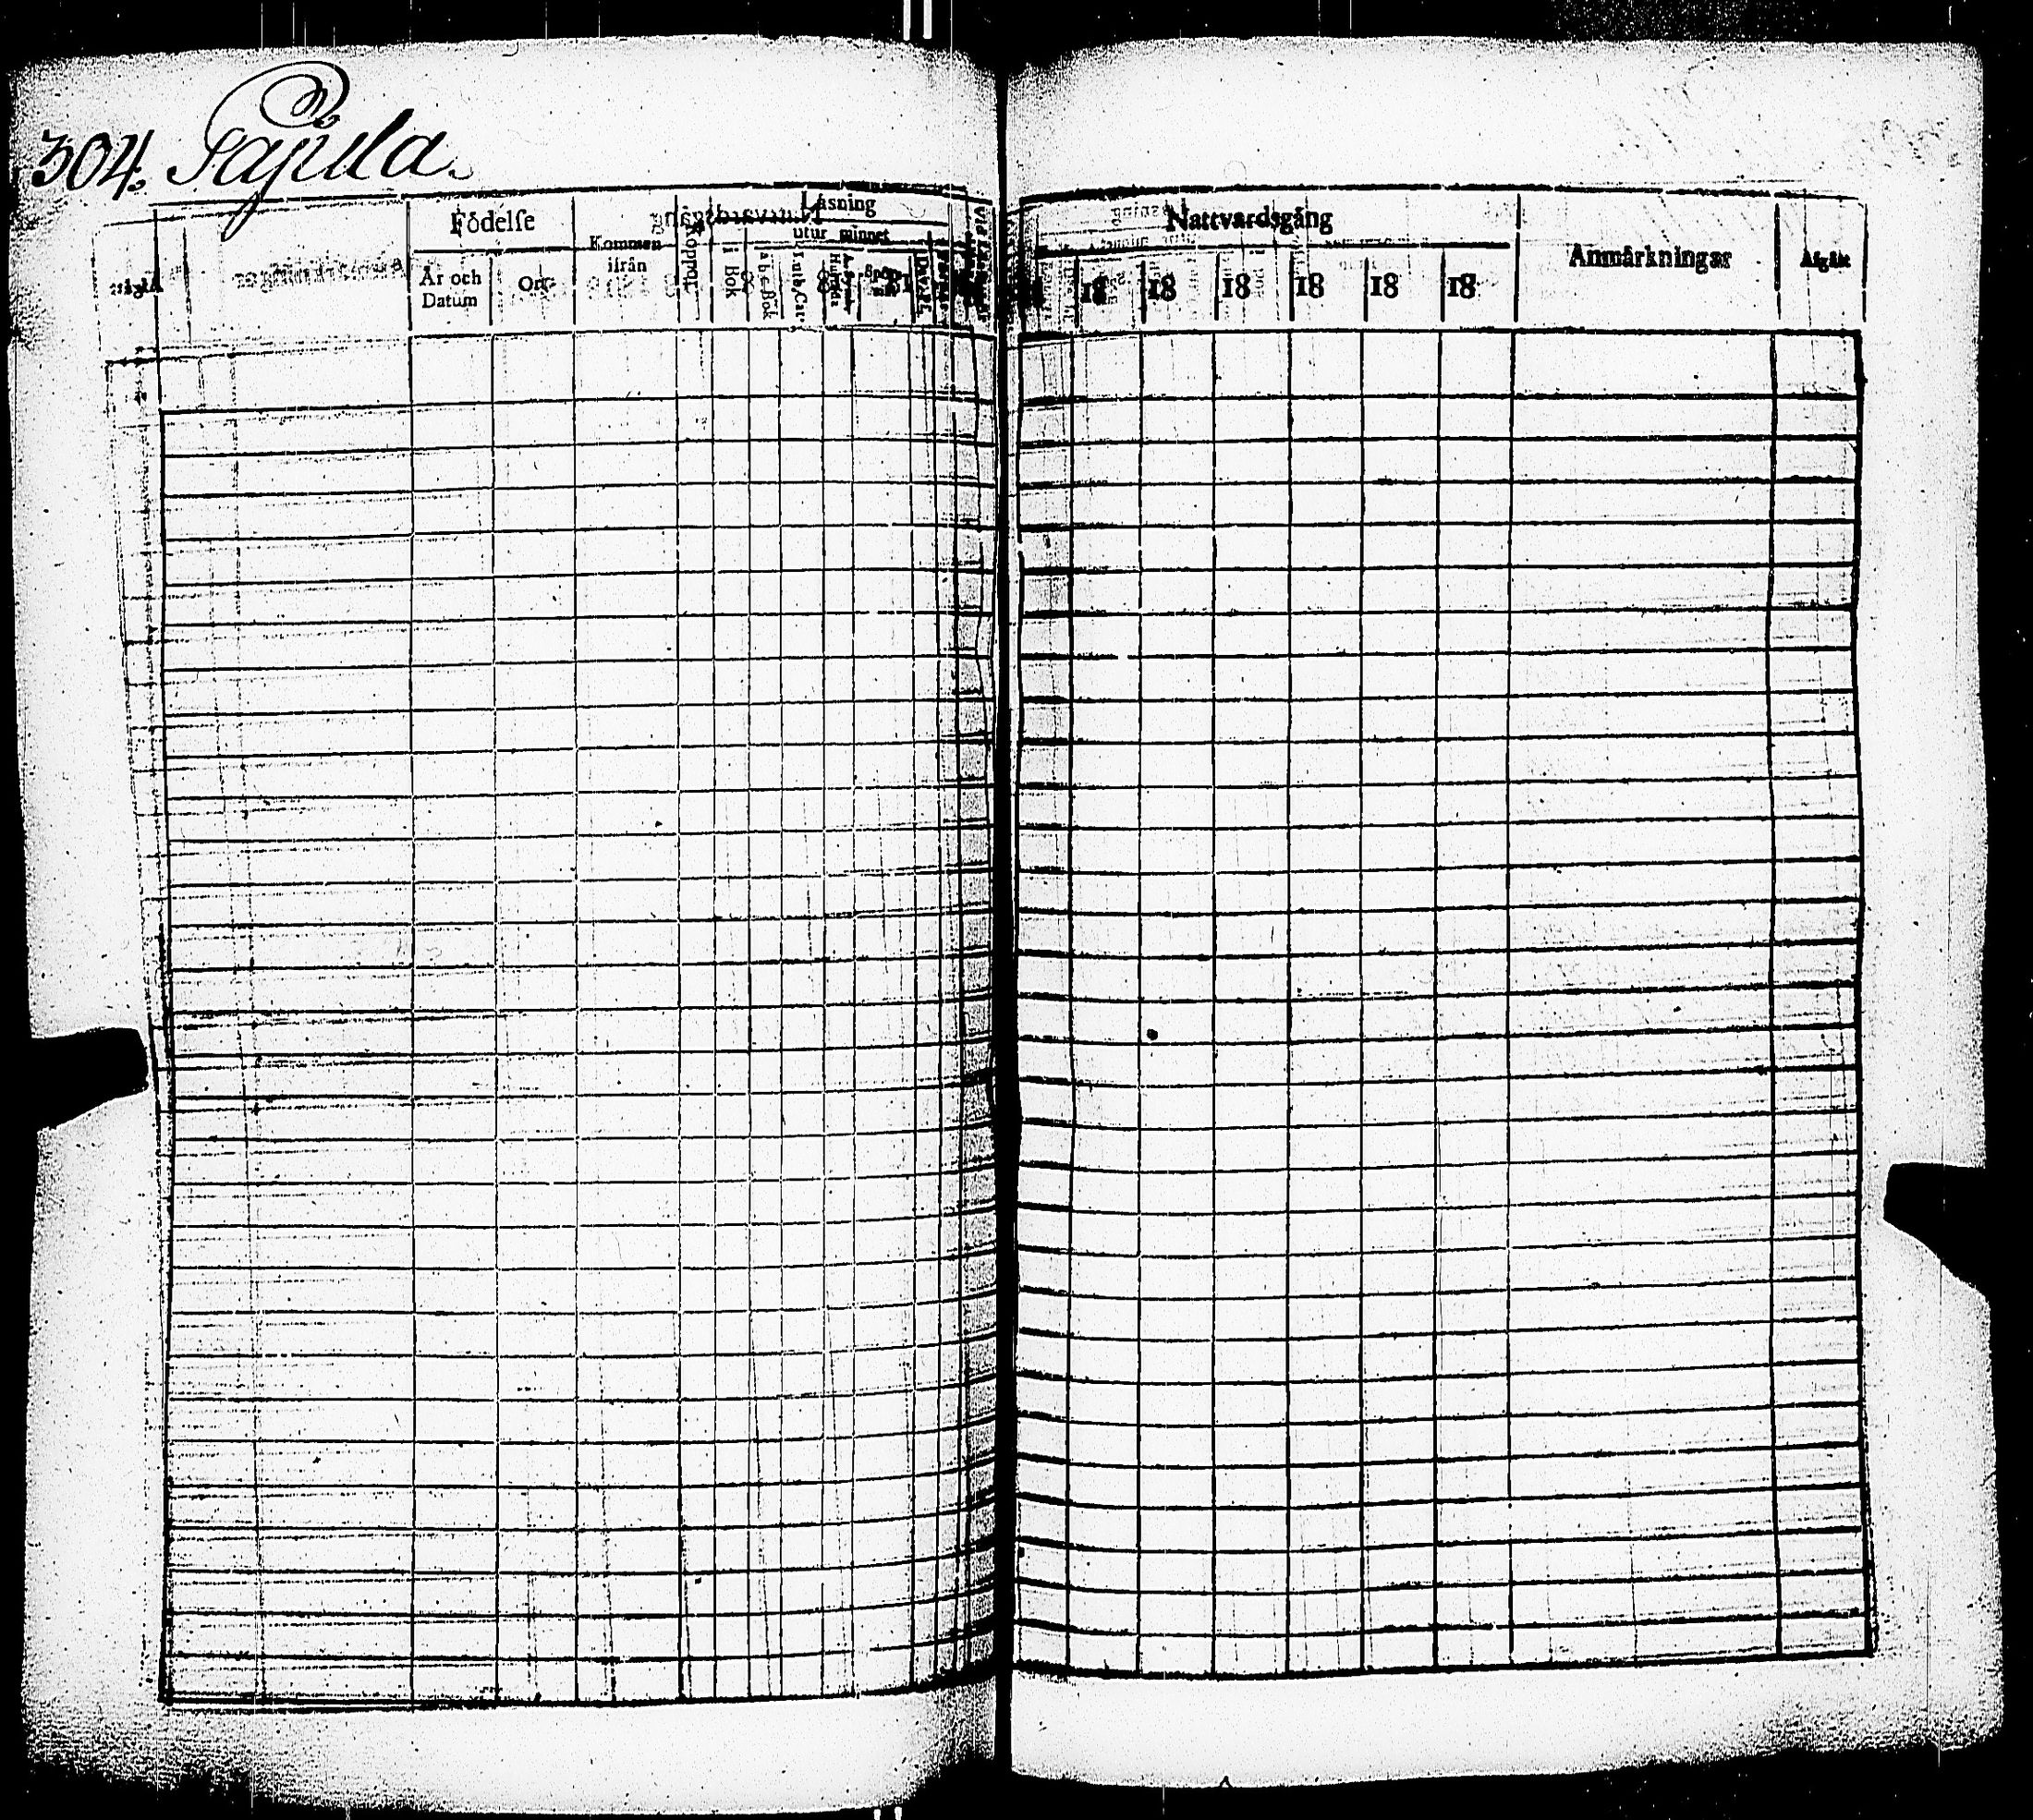 304. Pajula.
Födelse
Läsning
utur minnet
Kommen
ifrån
År och
Datum
Ort
Koppor
i Bok
a b c Bok
Luth. Cat.
Nattvardsgång
18 18 18 18 18 18
Anmärkningar
Afgått